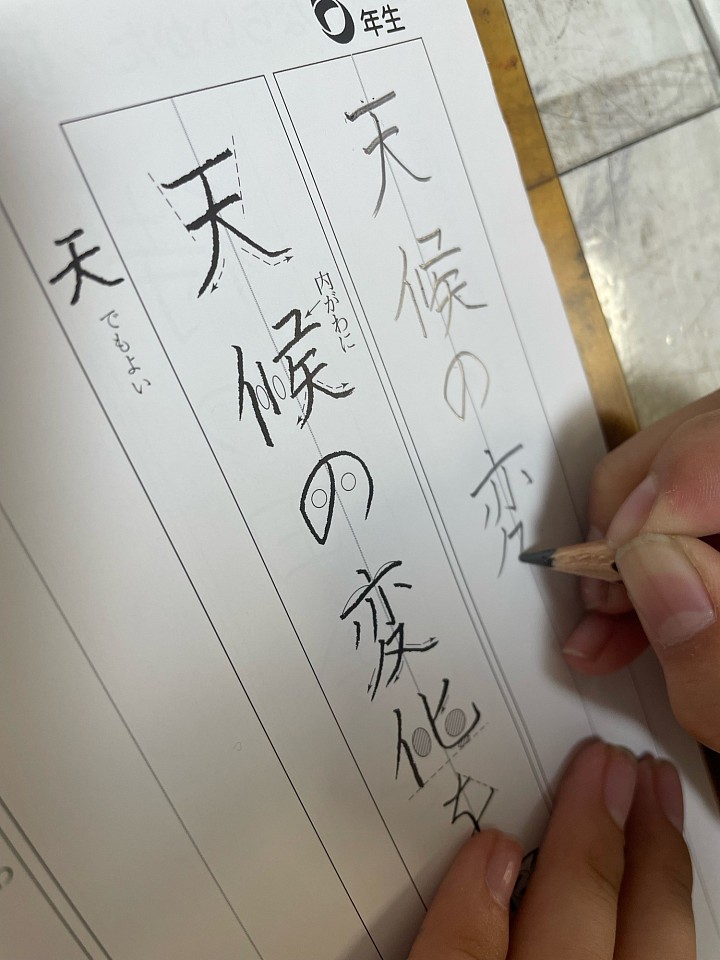 6年生
天候の変
天候の変化を
内がわに
天でもよい